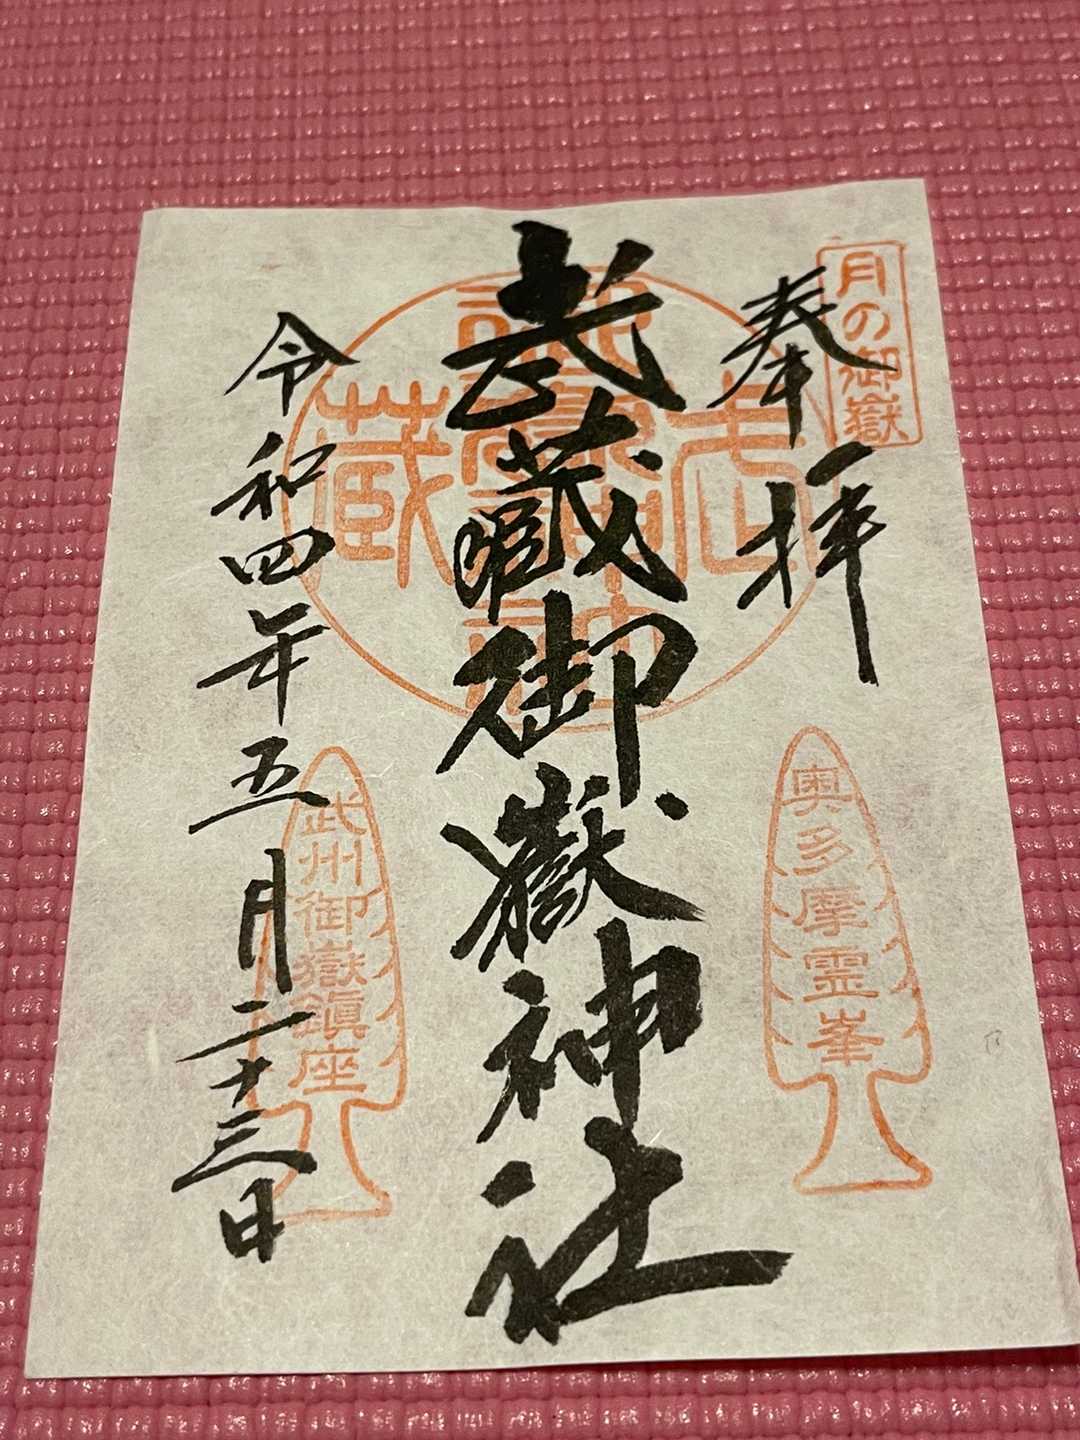 月の御嶽
奉拝
奥多摩霊峯
武蔵御嶽神社
武蔵
御嶽
神社
武州御嶽鎮座
令和四年五月二十三日